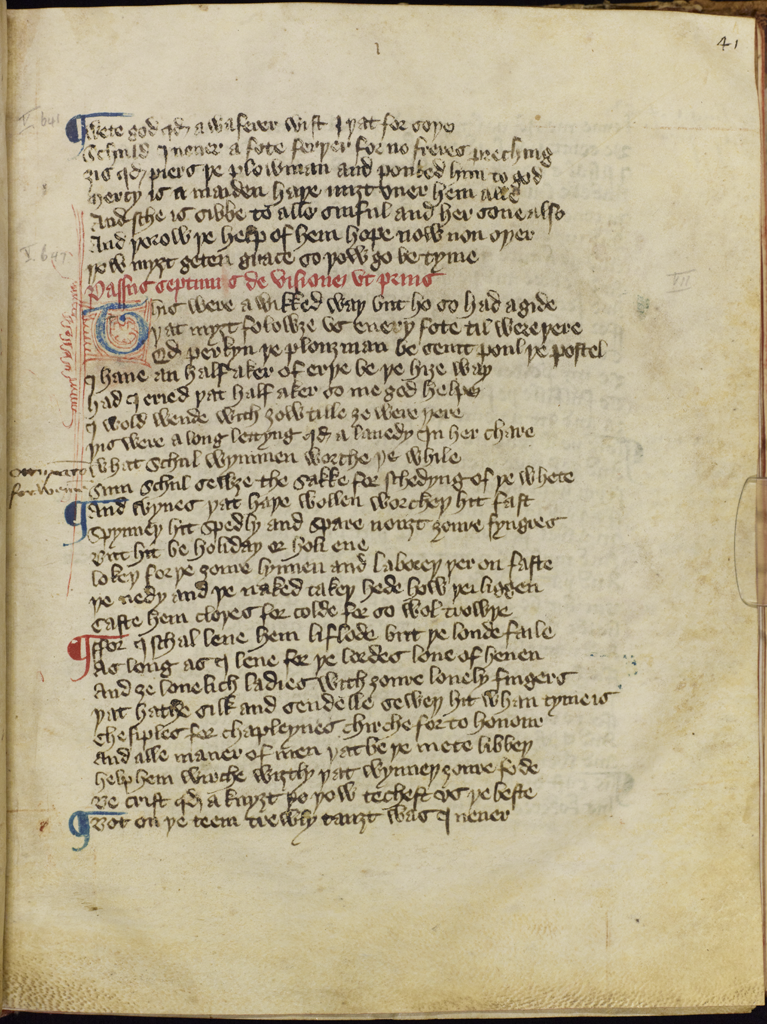 41
Wete god qd a waferer wist I þat for soþe
Schuld I neuer a fote ferþer for no freres preching
ȝis qd piers þe plowman and pouked him to god
Mercy is a maiden haþe miȝt ouer hem alle
And sche is sibbe to alle sinful and her sone also
And þorow þe help of hem hope now non oþer
þow myȝt geten grace so þow go be tyme
Passus septimus de visione vt prius
This were a wikked way but ho so had a gide
þat myȝt folowȝe vs euery fote til we were þere
Qd perkyn þe plouȝman be seint poul þe postel
I haue an half aker of erþe be þe hiȝe way
had I eried þat half aker so me god helpe
I wold wende with ȝow tille ȝe were þere
þis were a long lettyng qd a lauedy in her chare
What schul wymmen worche þe while
Sum schul sewȝe the sakke for schedyng of þe whete
And wyues þat haþe wollen worcheþ hit fast
Spynneþ hit spedly and spare nouȝt ȝoure fyngres
But hit be holiday or holi eue
lokeþ forþe ȝoure lynnen and laboreþ þer on faste
þe nedy and þe naked takeþ hede how þei liggen
Caste hem cloþes for colde for so wol trowþe
Ffor I schal lene hem liflode but þe londe faile
As long as I leue for þe lordes loue of heuen
And ȝe louelich ladies with ȝoure lonely fingers
þat hathe silk and sendelle seweþ hit whan tyme is
Chesiples for chapleynes chirche for to honour
And alle maner of men þat be þe mete libbeþ
help hem wirche wiȝtly þat wynneþ ȝoure fode
Be crist qd a knyȝt þo þow techest vs þe beste
Bot on þe teem trewly tauȝt was I neuer